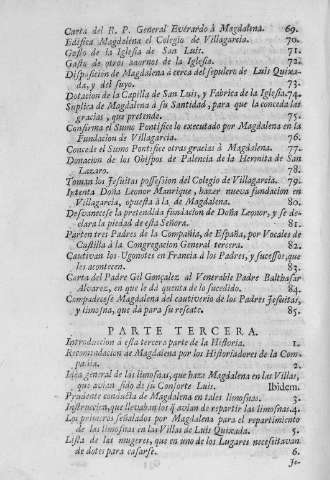 Carta del R. P. General Everardo à Magdalena. 69.
Edifica Magdalena el Colegio de Villagarcia. 70.
Gasto de la Iglesia de San Luis. 71.
Gasto de otros adornos de la Iglesia. 72.
Disposicion de Magdalena à cerca del sepulcro de Luis Quixa-
da, y del suyo. 73.
Dotacion de la Capilla de San Luis, y Fabrica de la Iglesia. 74.
Suplica de Magdalena à su Santidad, para que la conceda las
gracias, que pretende. 75.
Confirma el Sumo Pontifice lo executado por Magdalena en la
Fundacion de Villagarcia. 76.
Concede el Sumo Pontifice otras gracias à Magdalena. 77.
Donacion de los Obispos de Palencia de la Hermita de San
Lazaro. 78.
Toman los Jesuitas possession del Colegio de Villagarcia. 79.
Intenta Doña Leonor Manrique, hazer nueva fundacion en
Villagarcia, opuesta à la de Magdalena. 80.
Desvanecese la pretendida fundacion de Doña Leonor, y se de-
clara la piedad de esta Señora. 81.
Parten tres Padres de la Compañia, de España, por Vocales de
Castilla à la Congregacion General tercera. 82.
Cautivan los Ugonotes en Francia à los Padres, y sucessos, que
les acontecen. 83.
Carta del Padre Gil Gonçalez al Venerable Padre Balthasar
Alvarez, en que le dà quenta de lo sucedido. 84.
Compadecese Magdalena del cautiverio de los Padres Jesuitas,
y limosna, que dà para su rescate. 85.
PARTE TERCERA.
Introduccion à esta tercera parte de la Historia. 1.
Recomendacion de Magdalena por los Historiadores de la Com-
pañia. 2.
Idea general de las limosnas, que haze Magdalena en las Villas,
que avian sido de su Consorte Luis. Ibidem.
Prudente conducta de Magdalena en tales limosnas. 3.
Instruccion, que llevaban los q̃ avian de repartir las limosnas. 4.
Los primeros señalados por Magdalena para el repartimiento
de las limosnas en las Villas de Luis Quixada. 5.
Lista de las mugeres, que en uno de los Lugares necessitavan
de dotes para casarse. 6.